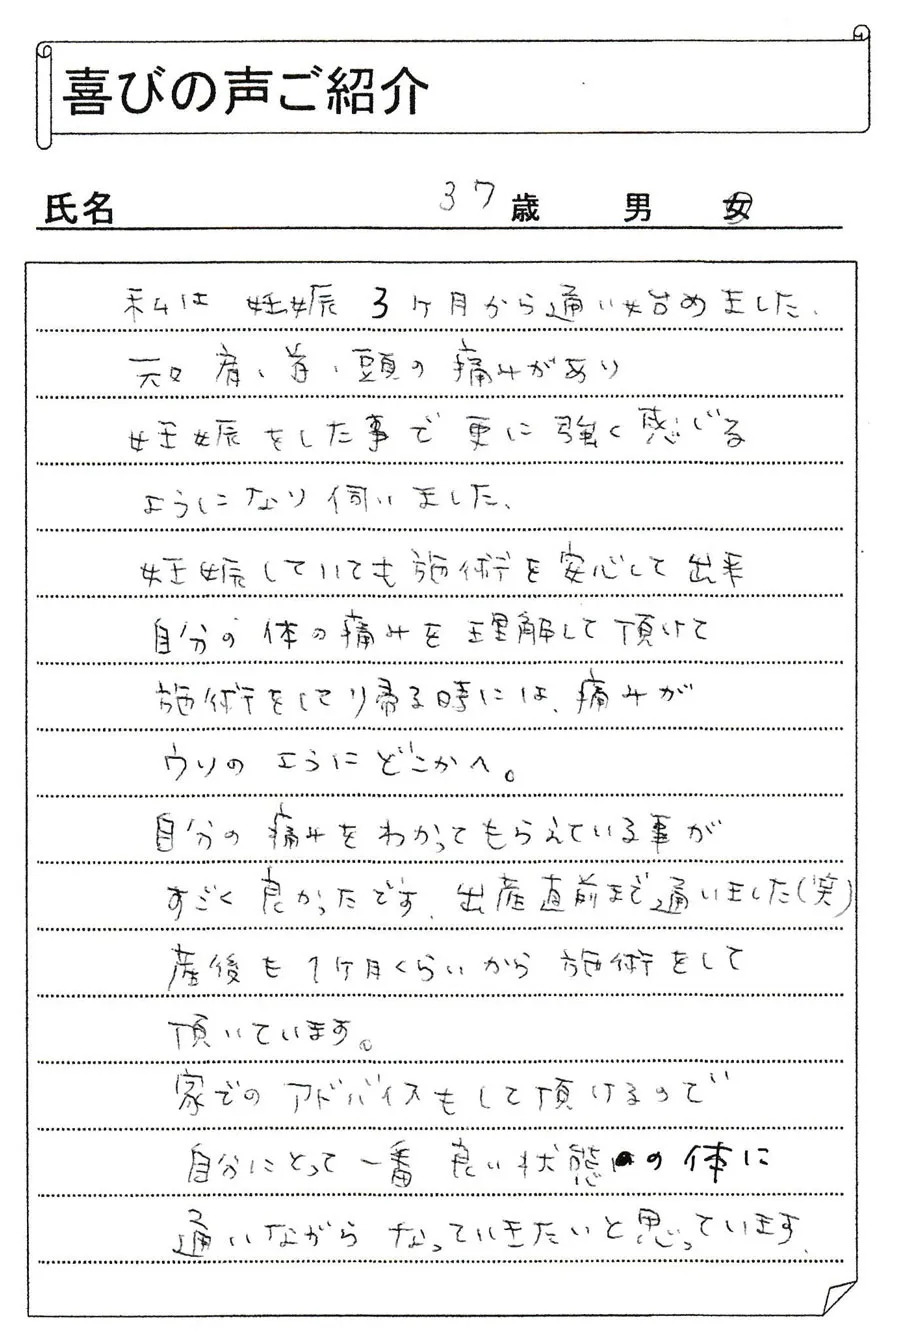 喜びの声ご紹介
氏名 37歳 男 女
私は 妊娠 3ヶ月から通い始めました、
元々 肩、首、頭の 痛みがあり
妊娠をした事で 更に 強く感じる
ようになり 伺いました、
妊娠していても施術を安心して 出来
自分の 体の痛みを 理解して 頂けて
施術をしてり帰る時には、痛みが
ウソの ように どこかへ。
自分の 痛みを わかってもらえている事が
すごく 良かったです、出産直前まで通いました(笑)
産後も 1ヶ月くらいから 施術をして
頂いています。
家での アドバイスもして頂けるので
自分にとって 一番 良い状態の体に
通いながら なっていきたいと思っています、